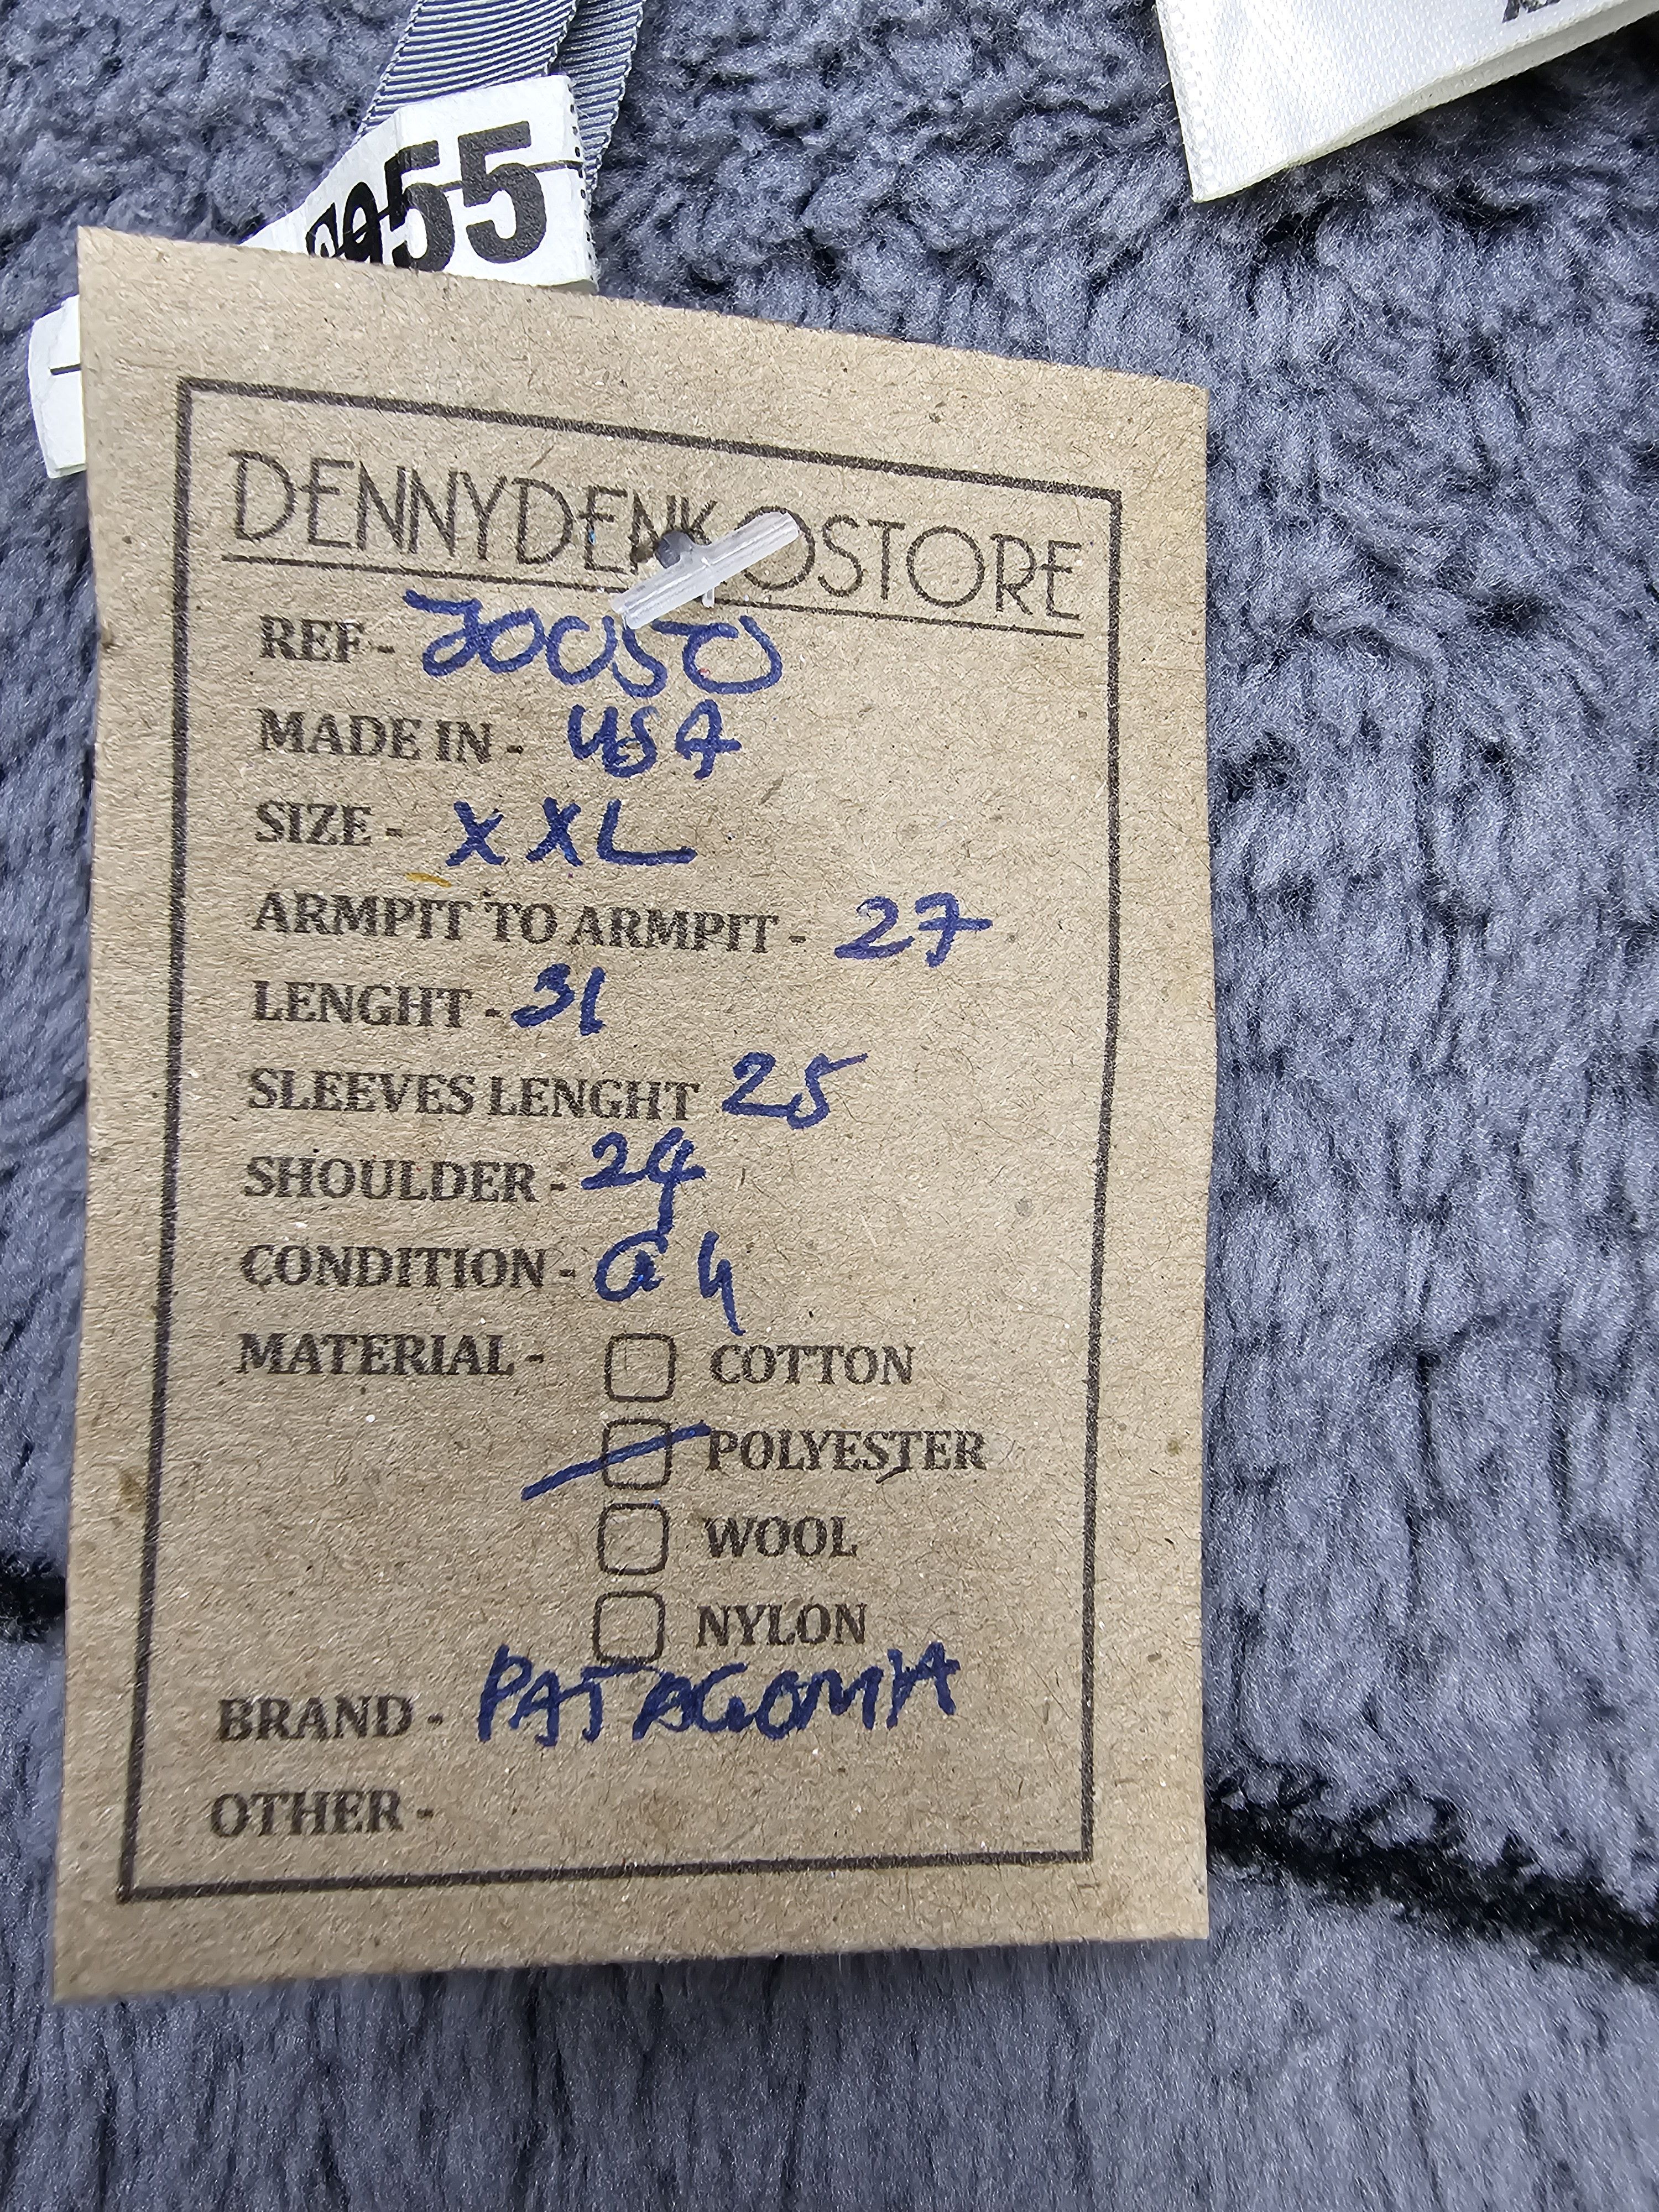 955
DENNYDENKOSTORE
REF- J0050
MADE IN - USA
SIZE - XXL
ARMPIT TO ARMPIT - 27
LENGHT - 31
SLEEVES LENGHT 25
SHOULDER - 24
CONDITION - a 4
MATERIAL - COTTON
POLYESTER
WOOL
NYLON
BRAND - PATAGONIA
OTHER -